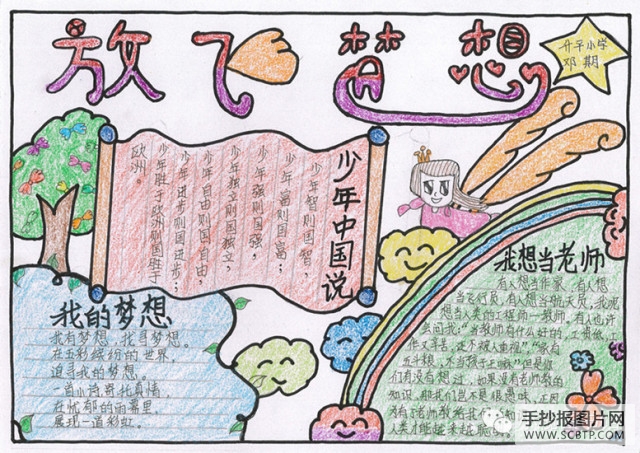 放飞梦想
小学
邓期
少年中国说
少年智则国智
少年富则国富；
少年强则国强，
少年独立则国独立，
少年自由则国自由，
少年进步则国进步；
少年胜于欧洲则国胜于
欧洲。
我的梦想
我有梦想，找寻梦想。
在五彩缤纷的世界，
追寻我的梦想。
一首小诗寄托真情，
在忧郁的雨幕里，
展现一道彩虹。
我想当老师
有人想当作家，有人想
当飞行员，有人想当航天员，我呢
想当人类的工程师—教师，有人也许
会问我："当教师有什么好的，工资低，工
作又辛苦，还不被人重视"，"家有
五斗粮，不当孩子王"但是你
们有没有想过，如果没有老师教的
知识，那我们岂不是很愚昧，正因
为有老师教给我们知
人类才能越来越聪
手抄报图片网
WWW.SCBTP.COM